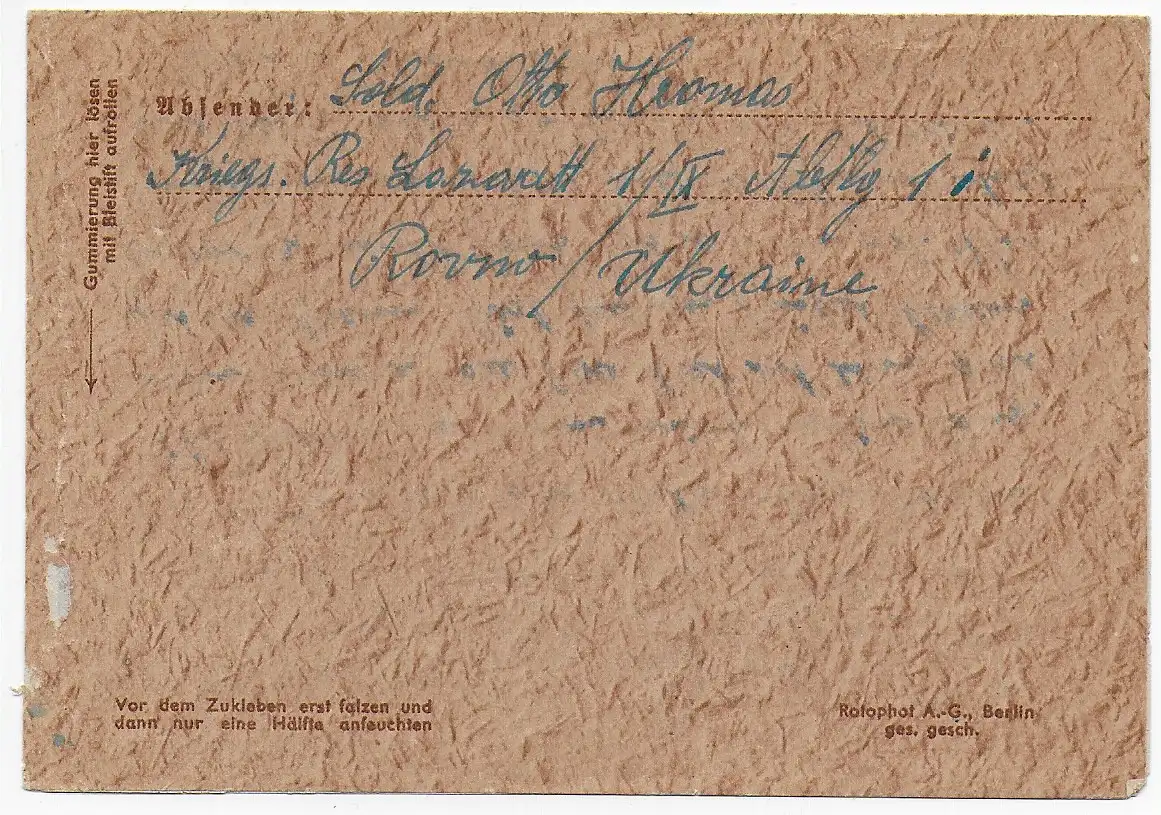 Absender: Sold. Otto Hromas
Kriegs. Res Lazarett 1/IX Abtlg 1 i
Rovno / Ukraine
Gummierung hier lösen
mit Bleistift aufrollen
Vor dem Zukleben erst falzen und
dann nur eine Hälfte anfeuchten
Rotophot A.-G., Berlin
ges. gesch.